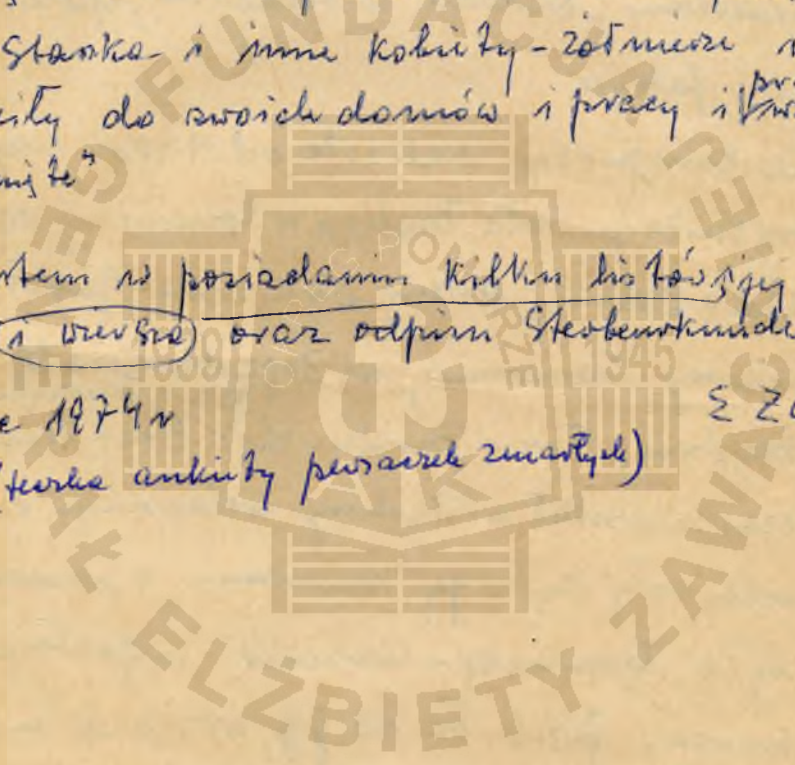 Stanka i inne kobiety-żołnierze
ciły do swoich domów i pracy i
nięte"
stem w posiadaniu kilku listów jej
i wiersza oraz odpisu Sterbeurkunde
e 1974 r E Za
(teczka ankiety peżaczek zmarłych)
FUNDACJA GENERAŁ ELŻBIETY ZAWACKIEJ
OKRĘG POMORZE
1939 1945
AK